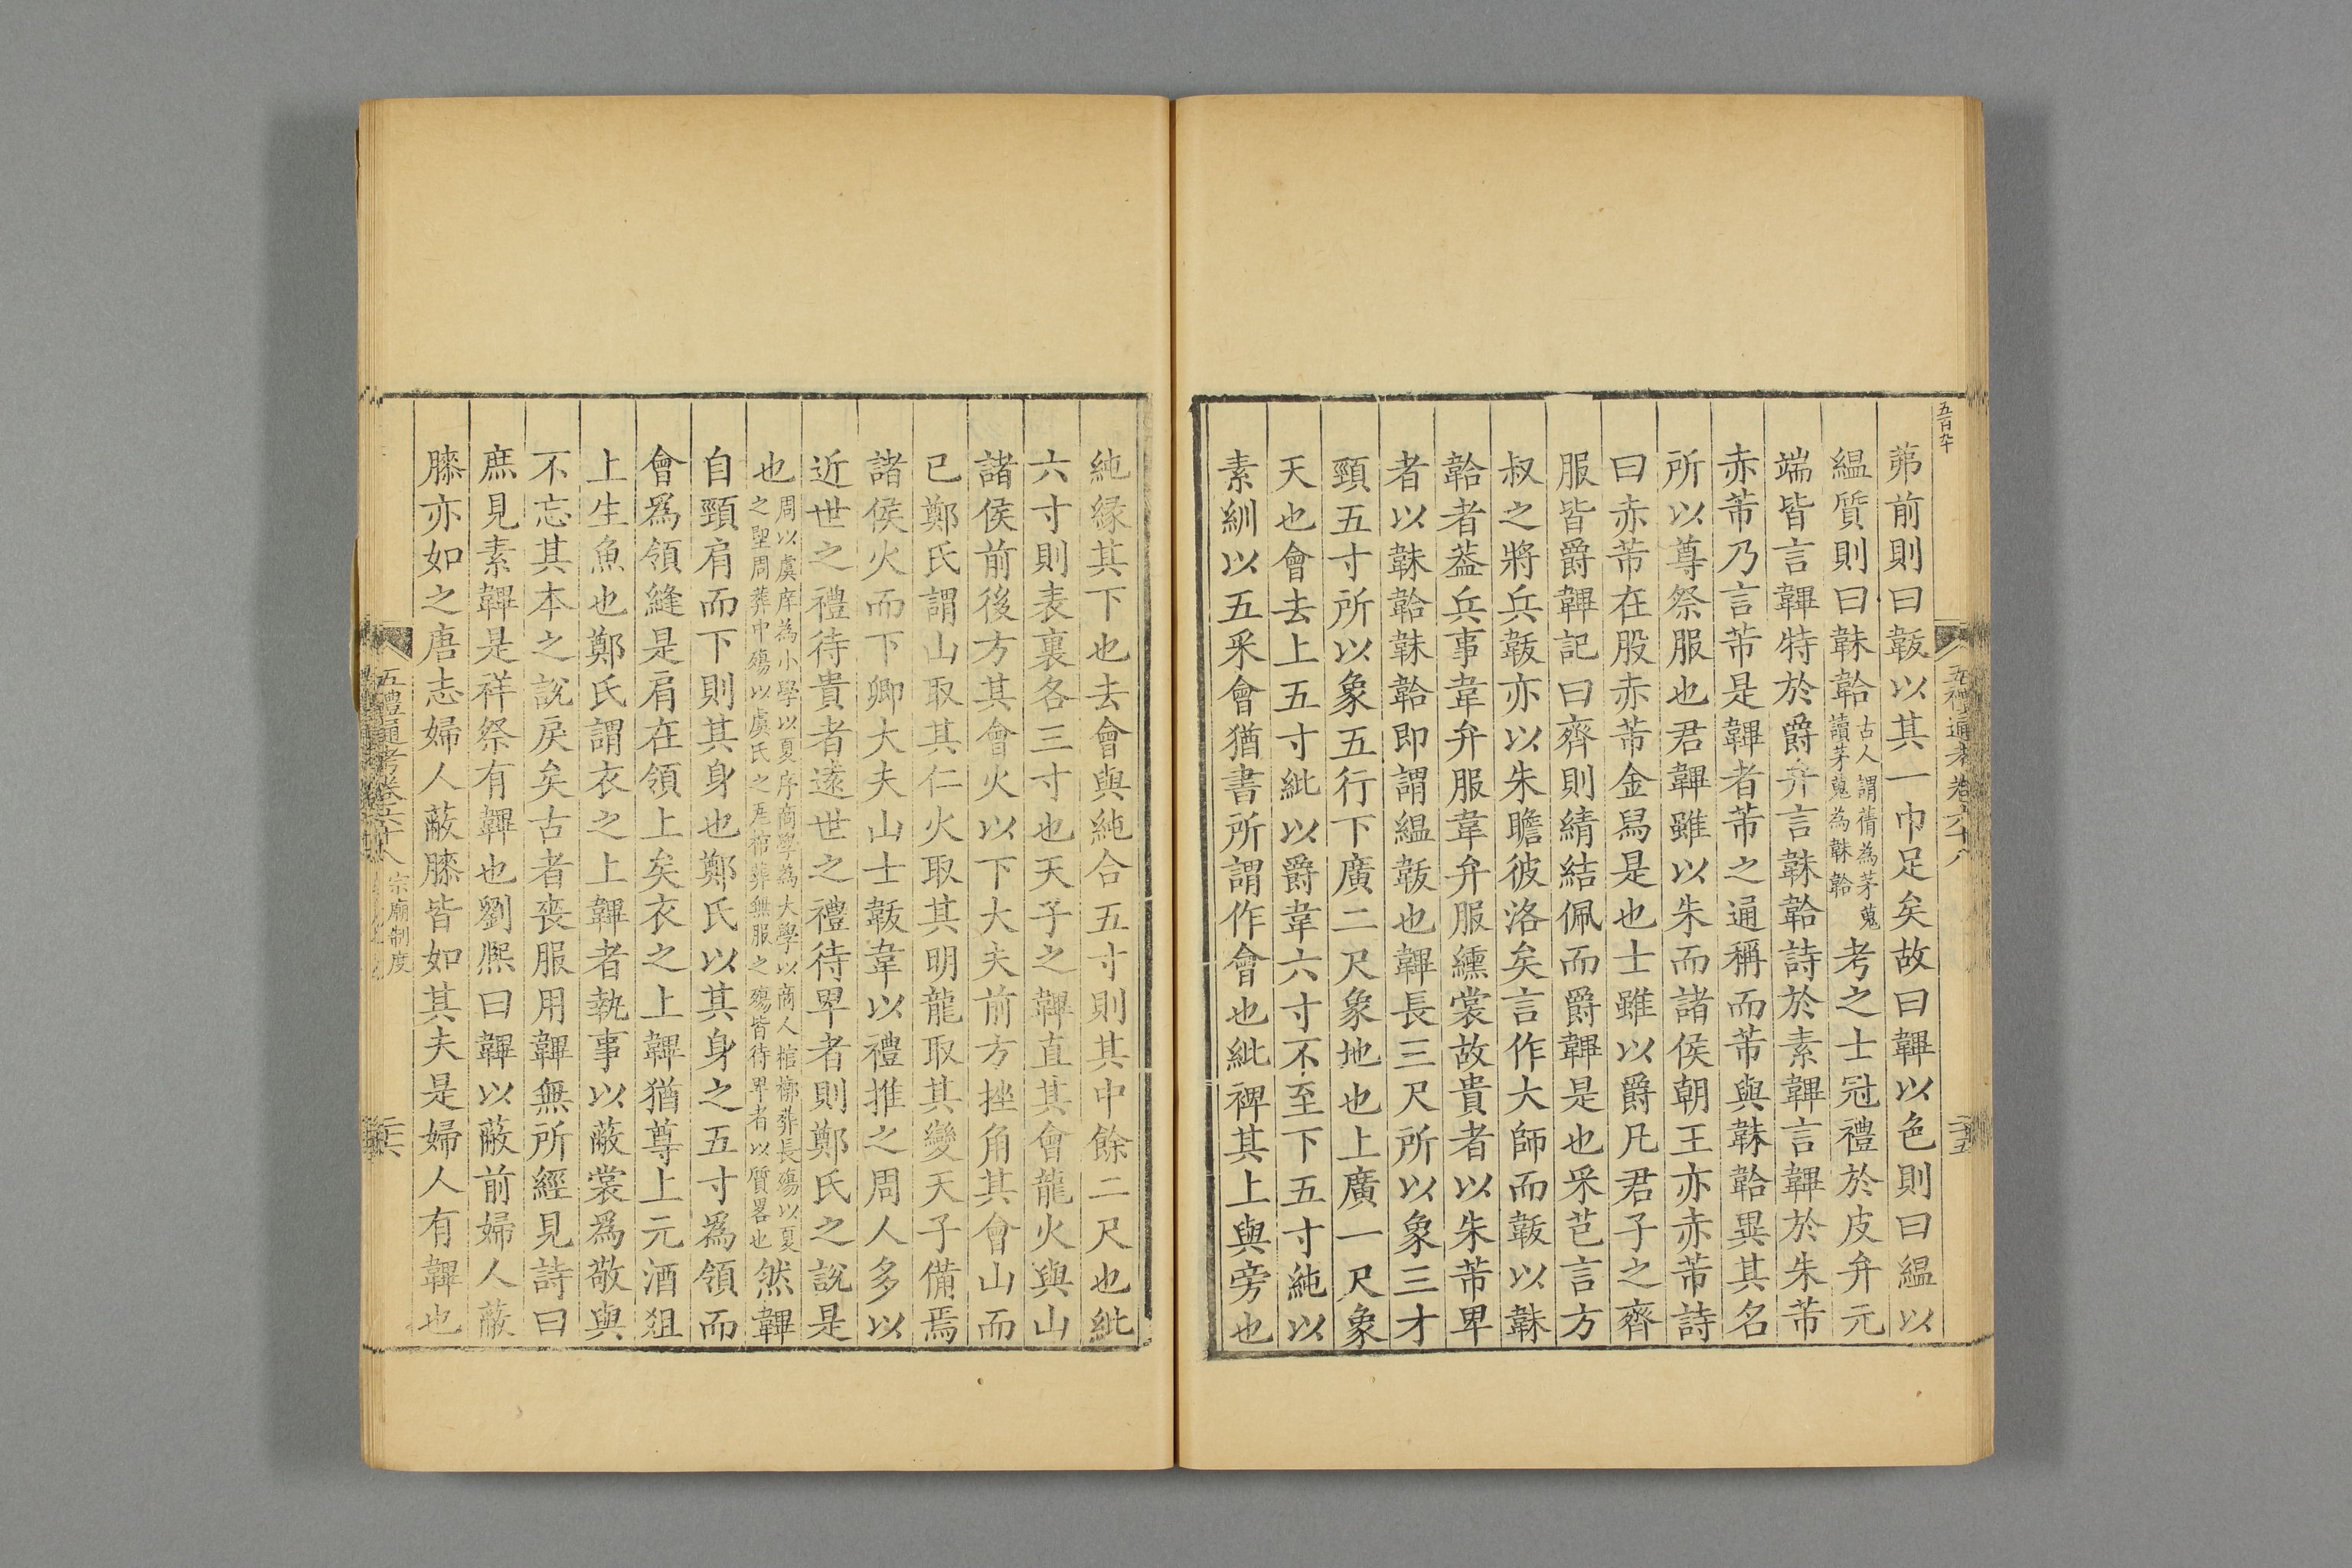 五百九十
五禮通考卷六十八
二十五
茀前則曰韍以其一巾足矣故曰韠以色則曰縕以
縕質則曰韎韐古人謂蒨為茅蒐讀茅蒐為韎韐考之士冠禮於皮弁元
端皆言韠特於爵弁言韎韐詩於素韠言韠於朱芾
赤芾乃言芾是韠者芾之通稱而芾與韎韐異其名
所以尊祭服也君韠雖以朱而諸侯朝王亦赤芾詩
曰赤芾在股赤芾金舄是也士雖以爵凡君子之齊
服皆爵韠記曰齊則綪結佩而爵韠是也采芑言方
叔之將兵韍亦以朱瞻彼洛矣言作大師而韍以韎
韐者葢兵事韋弁服韋弁服纁裳故貴者以朱芾卑
者以韎韐韎韐即謂縕韍也韠長三尺所以象三才
頸五寸所以象五行下廣二尺象地也上廣一尺象
天也會去上五寸紕以爵韋六寸不至下五寸純以
素紃以五采會猶書所謂作會也紕裨其上與旁也
純緣其下也去會與純合五寸則其中餘二尺也紕
六寸則表裏各三寸也天子之韠直其會龍火與山
諸侯前後方其會火以下大夫前方挫角其會山而
已鄭氏謂山取其仁火取其明龍取其變天子備焉
諸侯火而下卿大夫山士韍韋以禮推之周人多以
近世之禮待貴者遠世之禮待卑者則鄭氏之說是
也周以虞庠為小學以夏序商學為大學以商人棺槨葬長殤以夏之聖周葬中殤以虞氏之瓦棺葬無服之殤皆待卑者以質畧也然韠
自頸肩而下則其身也鄭氏以其身之五寸爲領而
會爲領縫是肩在領上矣衣之上韠猶尊上元酒俎
上生魚也鄭氏謂衣之上韠者執事以蔽裳爲敬與
不忘其本之說戾矣古者喪服用韠無所經見詩曰
庶見素韠是祥祭有韠也劉熙曰韠以蔽前婦人蔽
膝亦如之唐志婦人蔽膝皆如其夫是婦人有韠也
五禮通考卷六十八 宗廟制度
二十六